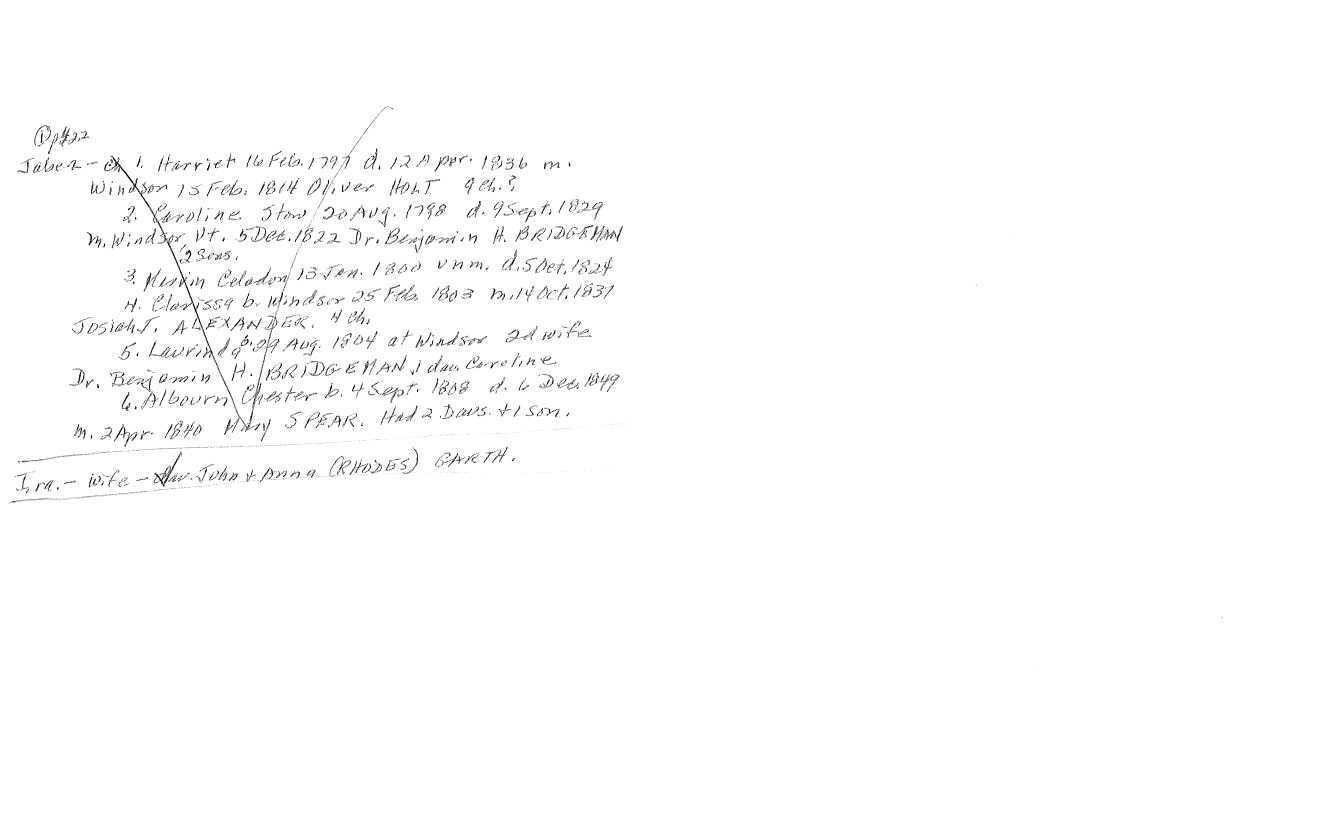 ① p#22
Jabez - ch 1. Harriet 16 Feb. 1797 d. 12 Apr. 1836 m.
Windsor 15 Feb. 1814 Oliver HOLT 9 ch.?
2. Caroline Stow 20 Aug. 1798 d. 9 Sept. 1829
m. Windsor, Vt. 5 Dec. 1822 Dr. Benjamin H. BRIDGEMAN
2 Sons.
3. Celadon 13 Jan. 1800 unm. d. 5 Oct. 1824
4. Clarissa b. Windsor 25 Feb. 1803 m. 14 Oct. 1837
Josiah J. ALEXANDER. 4 Ch.
5. Laurinda b. 29 Aug. 1804 at Windsor 2d wife
Dr. Benjamin H. BRIDGEMAN, 1 dau. Caroline
6. Albourn Chester b. 4 Sept. 1808 d. 6 Dec. 1849
m. 2 Apr. 1840 Mary SPEAR. Had 2 Daus. + 1 son.
Ira. - wife - dau. John + Anna (RHODES) GARTH.